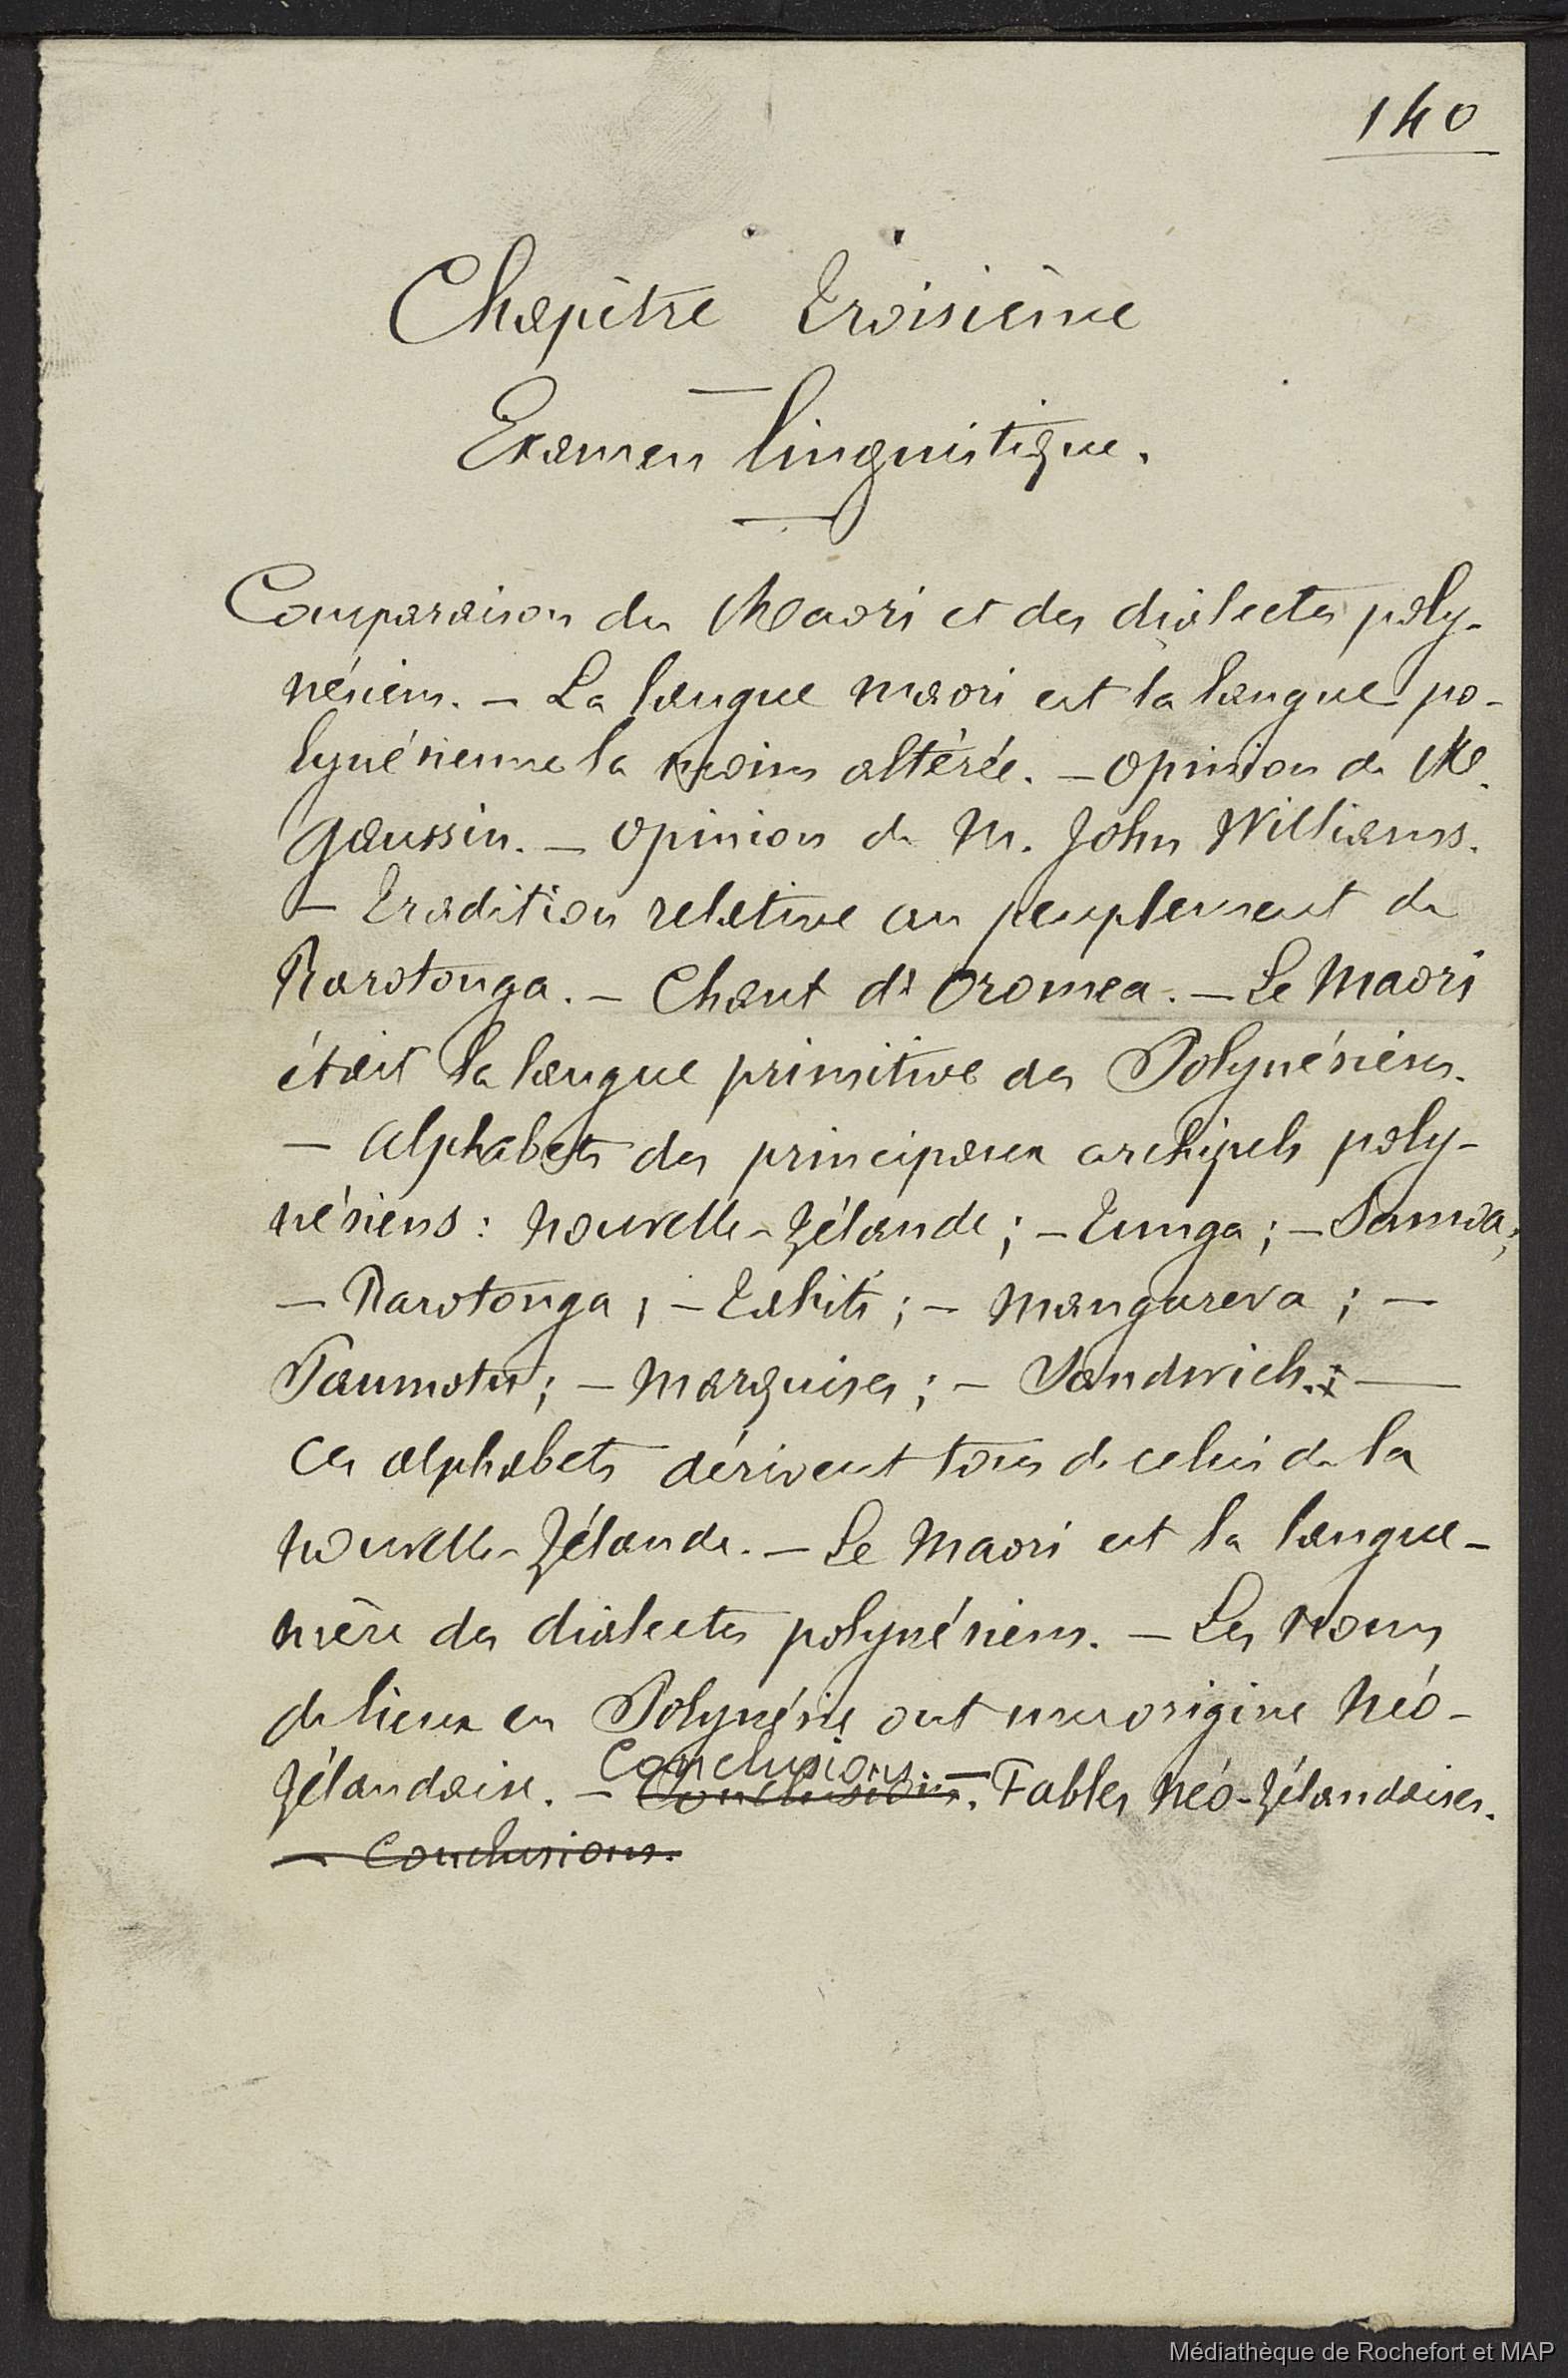 140
Chapitre Troisième
Examen linguistique.
Comparaison du Maori et des dialectes poly-
nésiens. — La langue maori est la langue po-
lynésienne la moins altérée. — Opinion de M.
Gaussin. — Opinion de M. John Williams.
— Tradition relative au peuplement de
Rarotonga. — Chant d'Oromea. — Le Maori
était la langue primitive des Polynésiens.
— Alphabets des principaux archipels poly-
nésiens : Nouvelle-Zélande ; — Tunga ; — Samoa ;
— Rarotonga ; — Tahiti ; — Mangareva ; —
Paumotu ; — Marquises ; — Sandwich. —
Ces alphabets dérivent tous de celui de la
Nouvelle-Zélande. — Le Maori est la langue-
mère des dialectes polynésiens. — Les noms
de lieux en Polynésie ont une origine Néo-
Zélandaise. — Conclusions. — Fables Néo-Zélandaises.
— Conclusions.
Médiathèque de Rochefort et MAP